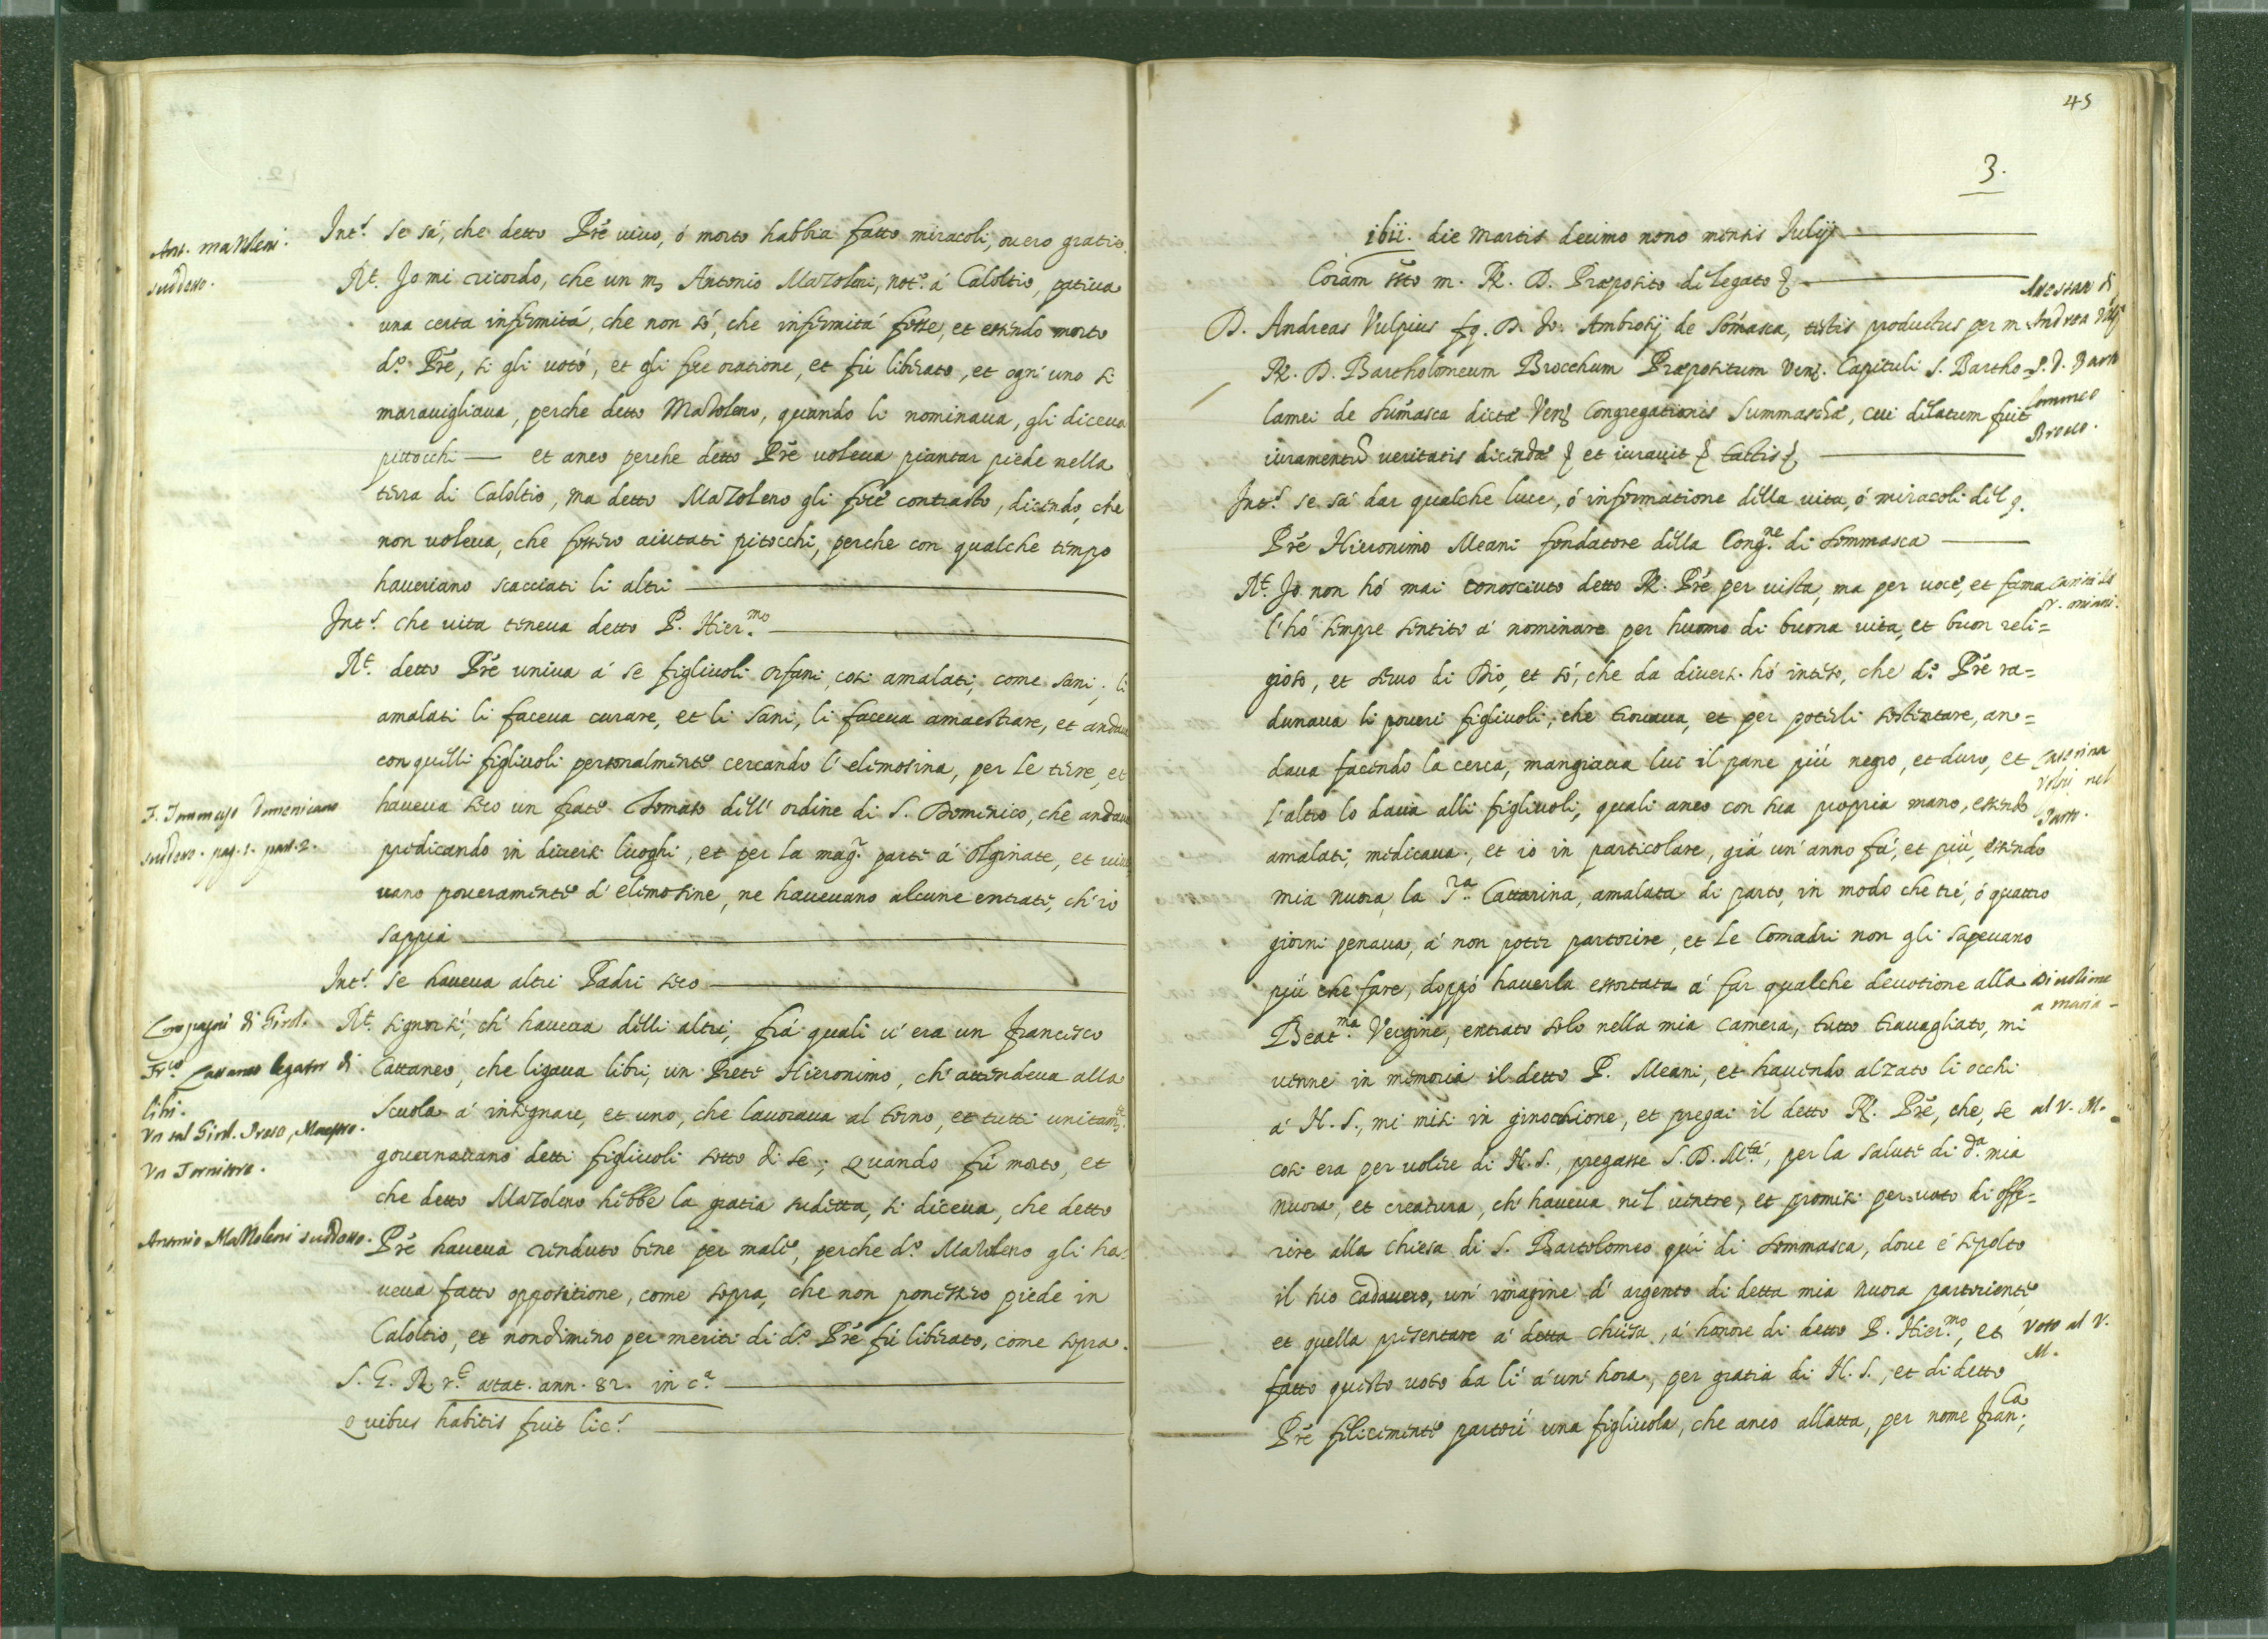 Ant. Mazoleni
suddetto.
Int.s se sà, che detto Prē viuo, ò morto habbia fatto miracoli, ouero gratie.
R.t Jo mi ricordo, che un m. Antonio Mazoleni, not.o à Caloltio, patiua
una certa infirmità, che non sò, che infirmità fosse, et essendo morto
d.o Prē, si gli uotò, et gli fece oratione, et fù liberato, et ogn'uno si
marauigliaua, perche detto Mazoleno, quando li nominaua, gli diceua
pittocchi — et anco perche detto Prē uoleua piantar piede nella
terra di Caloltio, ma detto Mazoleno gli fece contrasto, dicendo, che
non uoleua, che fossero aiutati pitocchi, perche con qualche tempo
haueriano scacciati li altri
Int.s che uita teneua detto P. Hier.mo
R.t detto Prē univa à se figliuoli orfani, cosi amalati, come sani, li
amalati li faceua curare, et li sani, li faceua amaestrare, et andaua
con quelli figliuoli personalmente cercando l'elimosina, per le terre, et
F. Tommaso Domenicano
suddetto. pag. 1. part. 2.
haueua seco un frate Tomaso dell'ordine di S. Dominico, che andaua
predicando in diuersi luoghi, et per la mag.r parte à Olginate, et uiue
uano poueramente d'elimosine, ne haueuano alcune entrate, ch'io
sappia
Int.s se haueua altri Padri seco
Compagni di Girol.
R.t signorsi, ch'haueua delli altri, frà quali u'era un Francesco
Fr.co Cattaneo legator di
libri.
Cattaneo, che ligaua libri, un Prete Hieronimo, ch'attendeua alla
Vn tal Girol. Prete, Maestro.
Scuola à insegnare, et uno, che lauoraua al torno, et tutti unitam.te
Vn Tornitore.
gouernauano detti figliuoli sotto di se; Quando fù morto, et
che detto Mazoleno hebbe la gratia sudetta, si diceua, che detto
Antonio Mazzoleni suddetto.
Prē haueua renduto bene per male, perche d.o Mazoleno gli ha-
ueua fatto oppositione, come sopra, che non ponessero piede in
Caloltio, et nondimeno per meriti di d.o Prē fù liberato, come sopra.
S. G. R. r.t ætat. ann. 82. in c.a
Quibus habitis fuit lic.s
45
3.
ibii. die Martis decimo nono mensis Julij
Coram s.to m. R. D. Præposito delegato &
Attestato di
Andrea Vulp.
P. D. Barto
lommeo
Brocco.
D. Andreas Vulpius fq. D. Jo: Ambrosij de Somasca, testis productus per m.
R. D. Bartholomeum Brocchum Præpositum Ven. Capituli S. Bartho-
lamei de Sumasca dictæ Ven. Congregationis Summaschæ, cui delatum fuit
iuramentū ueritatis dicendæ & et iurauit & tactis &
Int.s se sà dar qualche luce, ò informatione della uita, ò miracoli del q.
Prē Hieronimo Meani fondatore della Cong.ne di Sommasca
R.t Jo non hò mai conosciuto detto R. Prē per uista, ma per uoce, et fama
l'hò sempre sentito à nominare per huomo di buona uita, et buon reli=
gioso, et seruo di Dio, et sò, che da diuersi hò inteso, che d.o Prē ra=
dunaua li poueri figliuoli, che trouaua, et per poterli sostentare, an=
daua facendo la cerca, mangiaua lui il pane più negro, et duro, et
Caterina
Volpi nel
Parto.
l'altro lo daua alli figliuoli, quali anco con sua propria mano, essendo
amalati, medicaua, et io in particolare, già un'anno fà, et più, essendo
mia nuora, la S.ra Cattarina, amalata di parto, in modo che tré, ò quattro
giorni penaua, à non poter partorire, et le Comadri non gli sapeuano
più che fare, doppò hauerla essortata à far qualche deuotione alla
Diuotione
a Maria
Beat.ma Vergine, entrato solo nella mia camera, tutto trauagliato, mi
uenne in memoria il detto P. Meani, et hauendo alzato li occhi
à N. S., mi misi in ginocchione, et pregai il detto R. Prē, che, se
al V. M.
cosi era per uolere di N. S., pregasse S. D. M.tà, per la salute di d.a mia
nuora, et creatura, ch'haueua nel uentre, et promisi per uoto di offe=
rire alla chiesa di S. Bartolomeo quì di Sommasca, doue è sepolto
il suo cadauero, un'imagine d'argento di detta mia nuora partoriente,
et quella presentare à detta chiesa, à honore di detto P. Hier.mo, et
Voto al V.
M.
fatto questo uoto da lì à un'hora, per gratia di N. S., et di detto
Prē felicemente partorì una figliuola, che anco allatta, per nome Fran.ca;